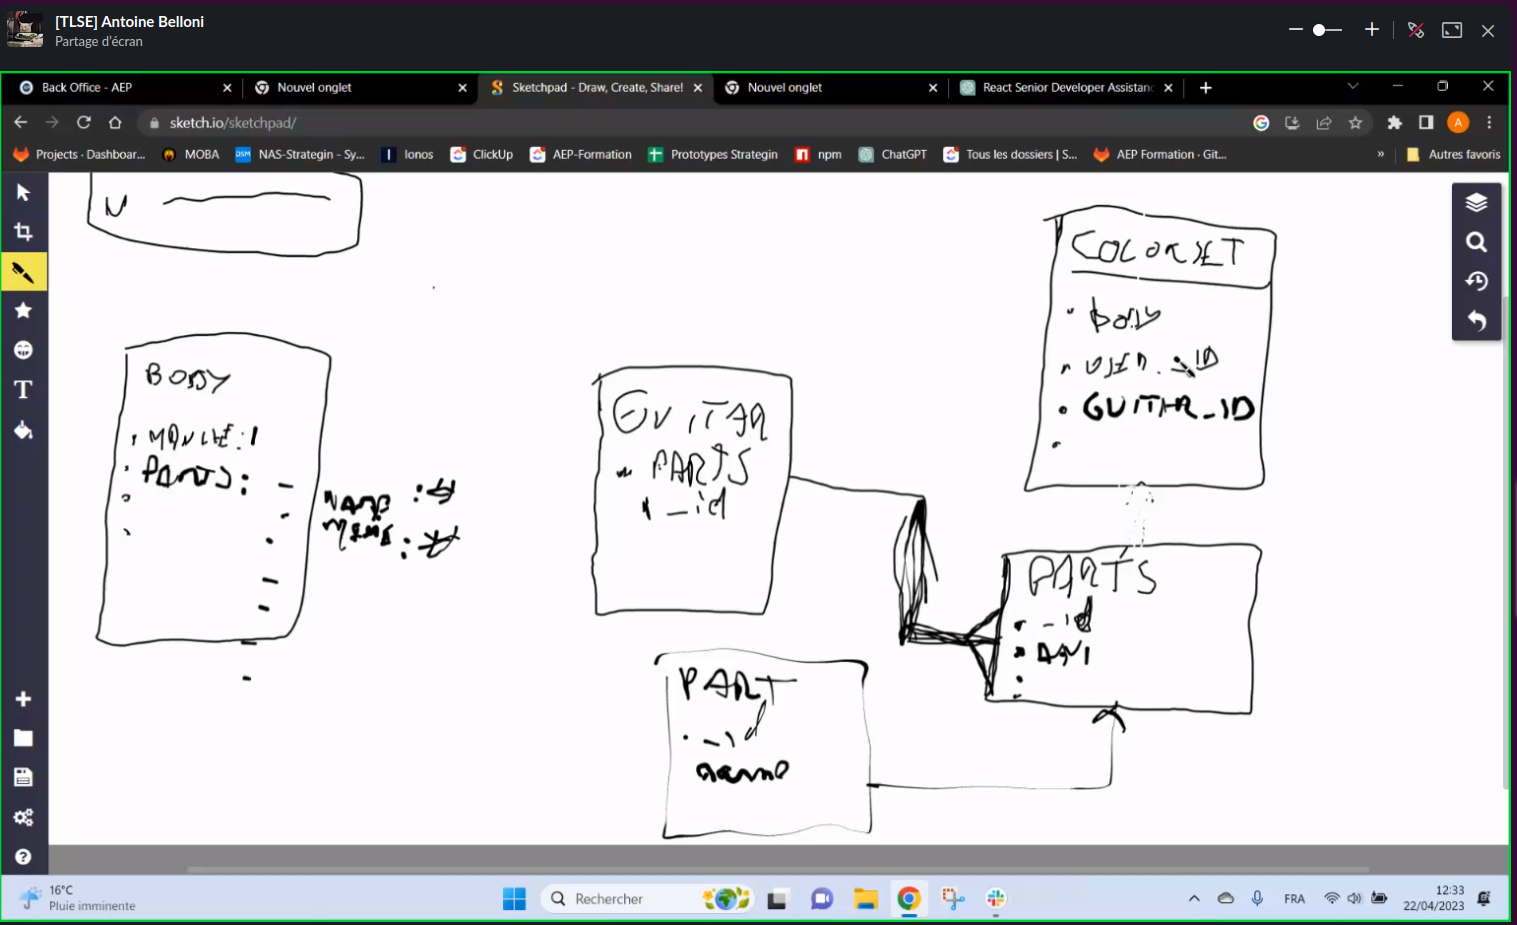 [TLSE] Antoine Belloni
Partage d'écran
Back Office - AEP
Nouvel onglet
Sketchpad - Draw, Create, Share!
Nouvel onglet
React Senior Developer Assistanc
sketch.io/sketchpad/
A
Projects · Dashboar...
MOBA
NAS-Strategin - Sy...
Ionos
ClickUp
AEP-Formation
Prototypes Strategin
npm
ChatGPT
Tous les dossiers | S...
AEP Formation · Git...
»
Autres favoris
N
COLORSET
BODY
USER_ID
GUITAR_ID
BODY
PARTS:
NAME :
GUITAR
PARTS
_id
PARTS
_id
PART
_id
name
16°C
Pluie imminente
Rechercher
FRA
12:33
22/04/2023